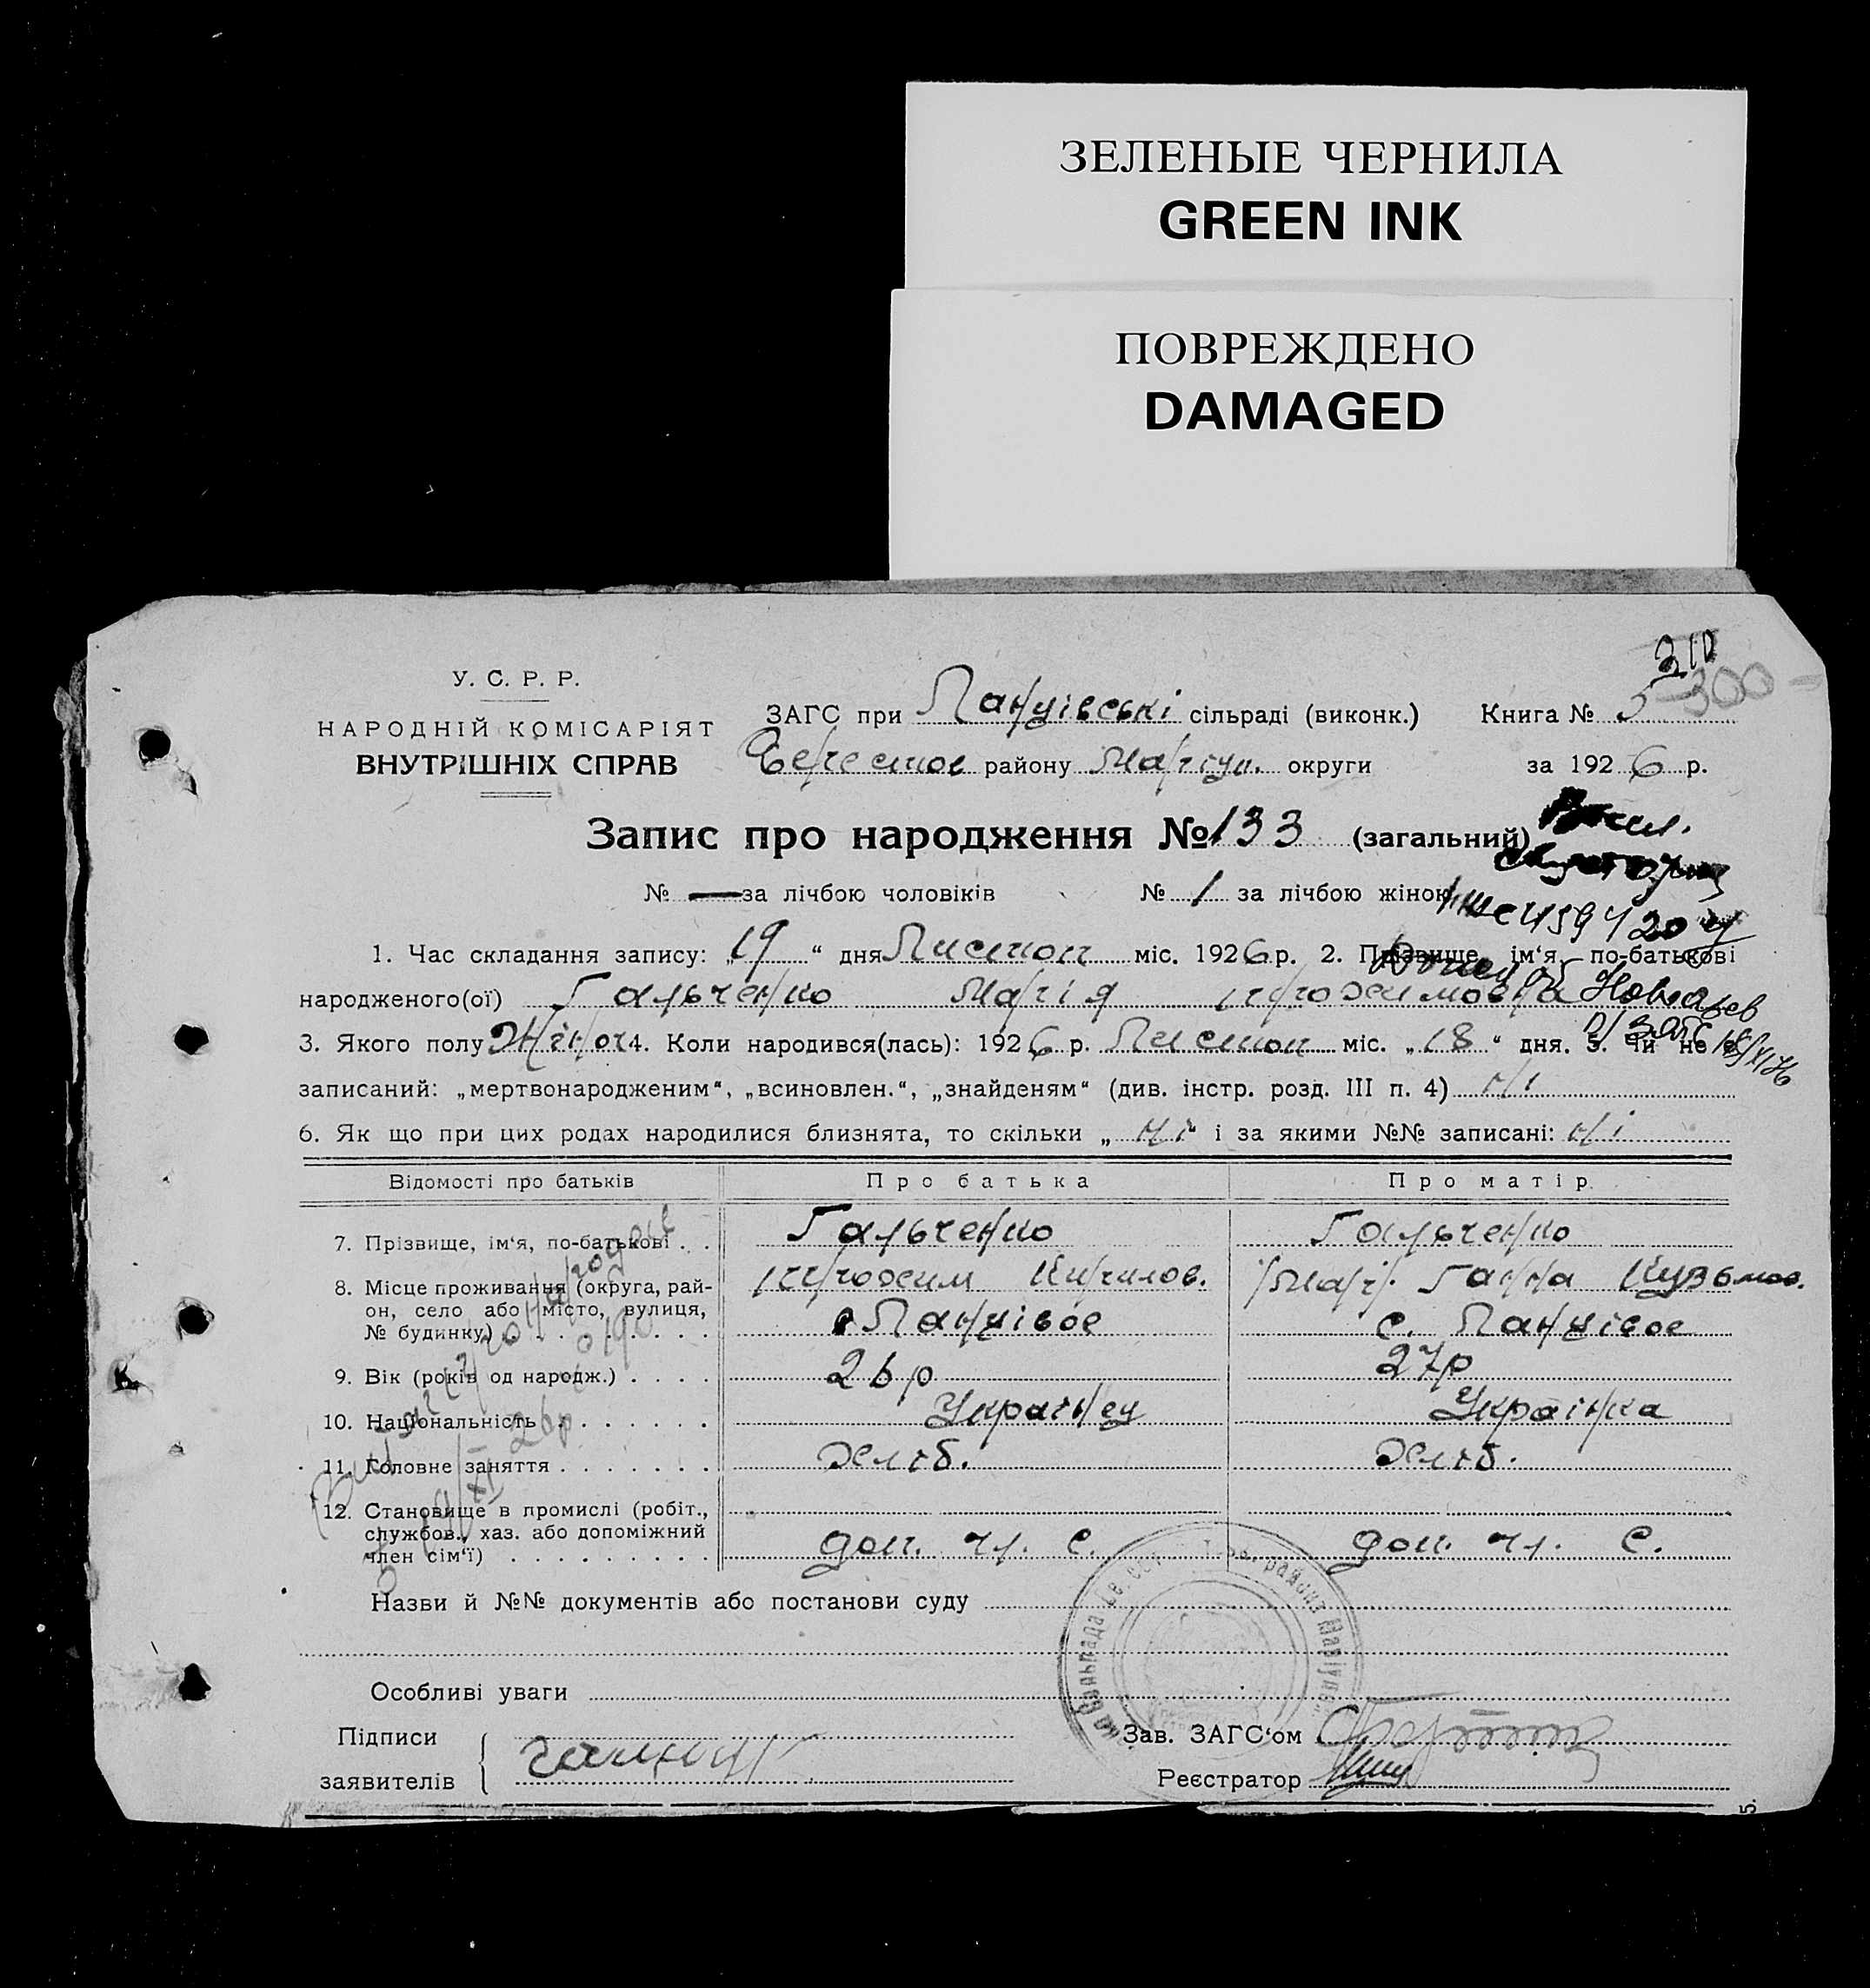 ЗЕЛЕНЫЕ ЧЕРНИЛА
GREEN INK
ПОВРЕЖДЕНО
DAMAGED
310
300
У. С. Р. Р.
НАРОДНІЙ КОМІСАРІЯТ
ВНУТРІШНІХ СПРАВ
ЗАГС при Панцівські сільраді (виконк.) Книга № 5
району Маріуп. округи за 1926 р.
Запис про народження № 133 (загальний)
№ — за лічбою чоловіків № 1 за лічбою жінок
1. Час складання запису: „19“ дня Листоп міс. 1926 р. 2. Прізвище, ім‘я, по-батькові
народженого(ої) Гальченко Марія
3. Якого полу Жіноч 4. Коли народився(лась): 1926 р. Листоп міс. „18“ дня. 5. Чи не є
записаний: „мертвонародженим“, „всиновлен.“, „знайденям“ (див. інстр. розд. III п. 4) ні
6. Як що при цих родах народилися близнята, то скільки „ні“ і за якими №№ записані: ні
Відомості про батьків Про батька Про матір
7. Прізвище, ім‘я, по-батькові . . Гальченко Гальченко
8. Місце проживання (округа, рай- Кирилов. Ганна Кузьмов.
он, село або місто, вулиця, с. Панцівое с. Панцівое
№ будинку) . . . . . . . . .
9. Вік (років од народж.) . . . . 26р 27р
10. Національність . . . . . . . Українец Українка
11. Головне заняття . . . . . . . хліб. хліб.
12. Становище в промислі (робіт.,
службов., хаз. або допоміжний
член сім‘ї) . . . . . . . . . доп. чл. с. доп. чл. с.
Назви й №№ документів або постанови суду
Особливі уваги
Підписи Зав. ЗАГС‘ом
заявителів Реєстратор
5.